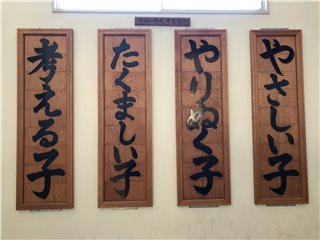 やさしい子
やりぬく子
たくましい子
考える子